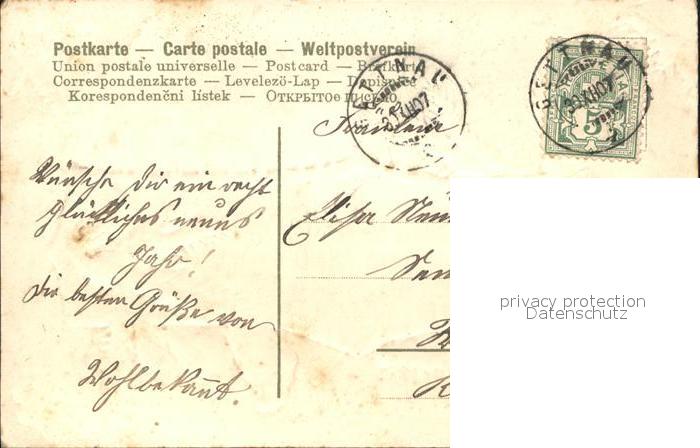 Postkarte — Carte postale — Weltpostverein
Union postale universelle — Postcard — Briefkart
Correspondenzkarte — Levelezö-Lap — Dopisnice
Korespondenční lístek — ОТКРЫТОЕ ПИСЬМО
GETTNAU
GETTNAU
31.XII.07
5
Fräulein
Wünsche Dir ein recht
glückliches neues
Jahr!
Die besten Grüße von
Wohlbekannt.
Elisa
privacy protection
Datenschutz